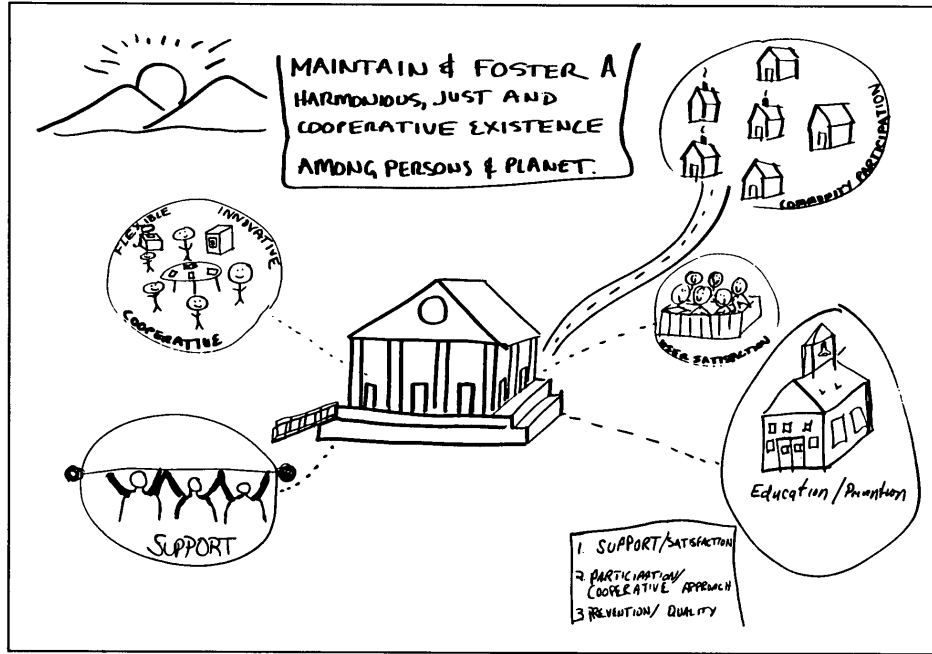 MAINTAIN & FOSTER A
HARMONIOUS, JUST AND
COOPERATIVE EXISTENCE
AMONG PERSONS & PLANET.
COMMUNITY PARTICIPATION
FLEXIBLE
INNOVATIVE
COOPERATIVE
USER SATISFACTION
Education/Prevention
SUPPORT
1. SUPPORT/SATISFACTION
2. PARTICIPATION/
COOPERATIVE APPROACH
3 PREVENTION/ QUALITY